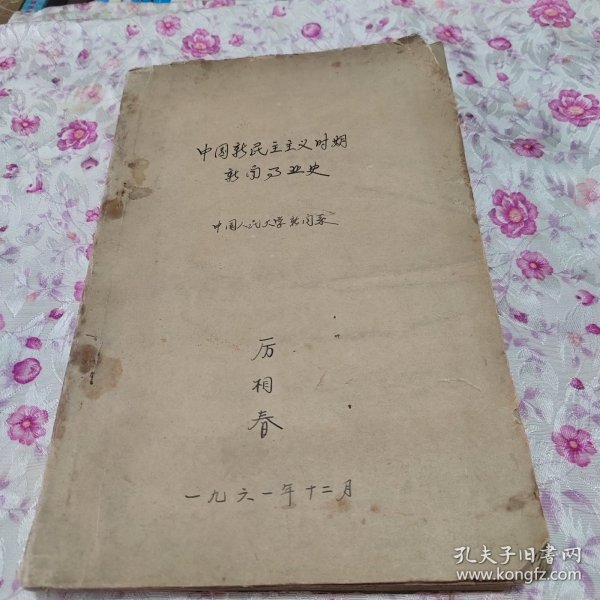 中国新民主主义时期
新闻事业史
中国人民大学新闻系
厉相春
一九六一年十二月
孔夫子旧书网
www.kongfz.com